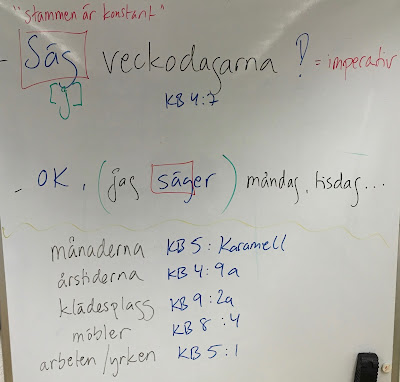 "stammen är konstant"
- Säg veckodagarna ? = imperativ
[j]
KB 4:7
- OK, (jag säger) måndag, tisdag...
månaderna KB 5: Karamell
årstiderna KB 4:9a
klädesplagg KB 9:2a
möbler KB 8:4
arbeten/yrken KB 5:1